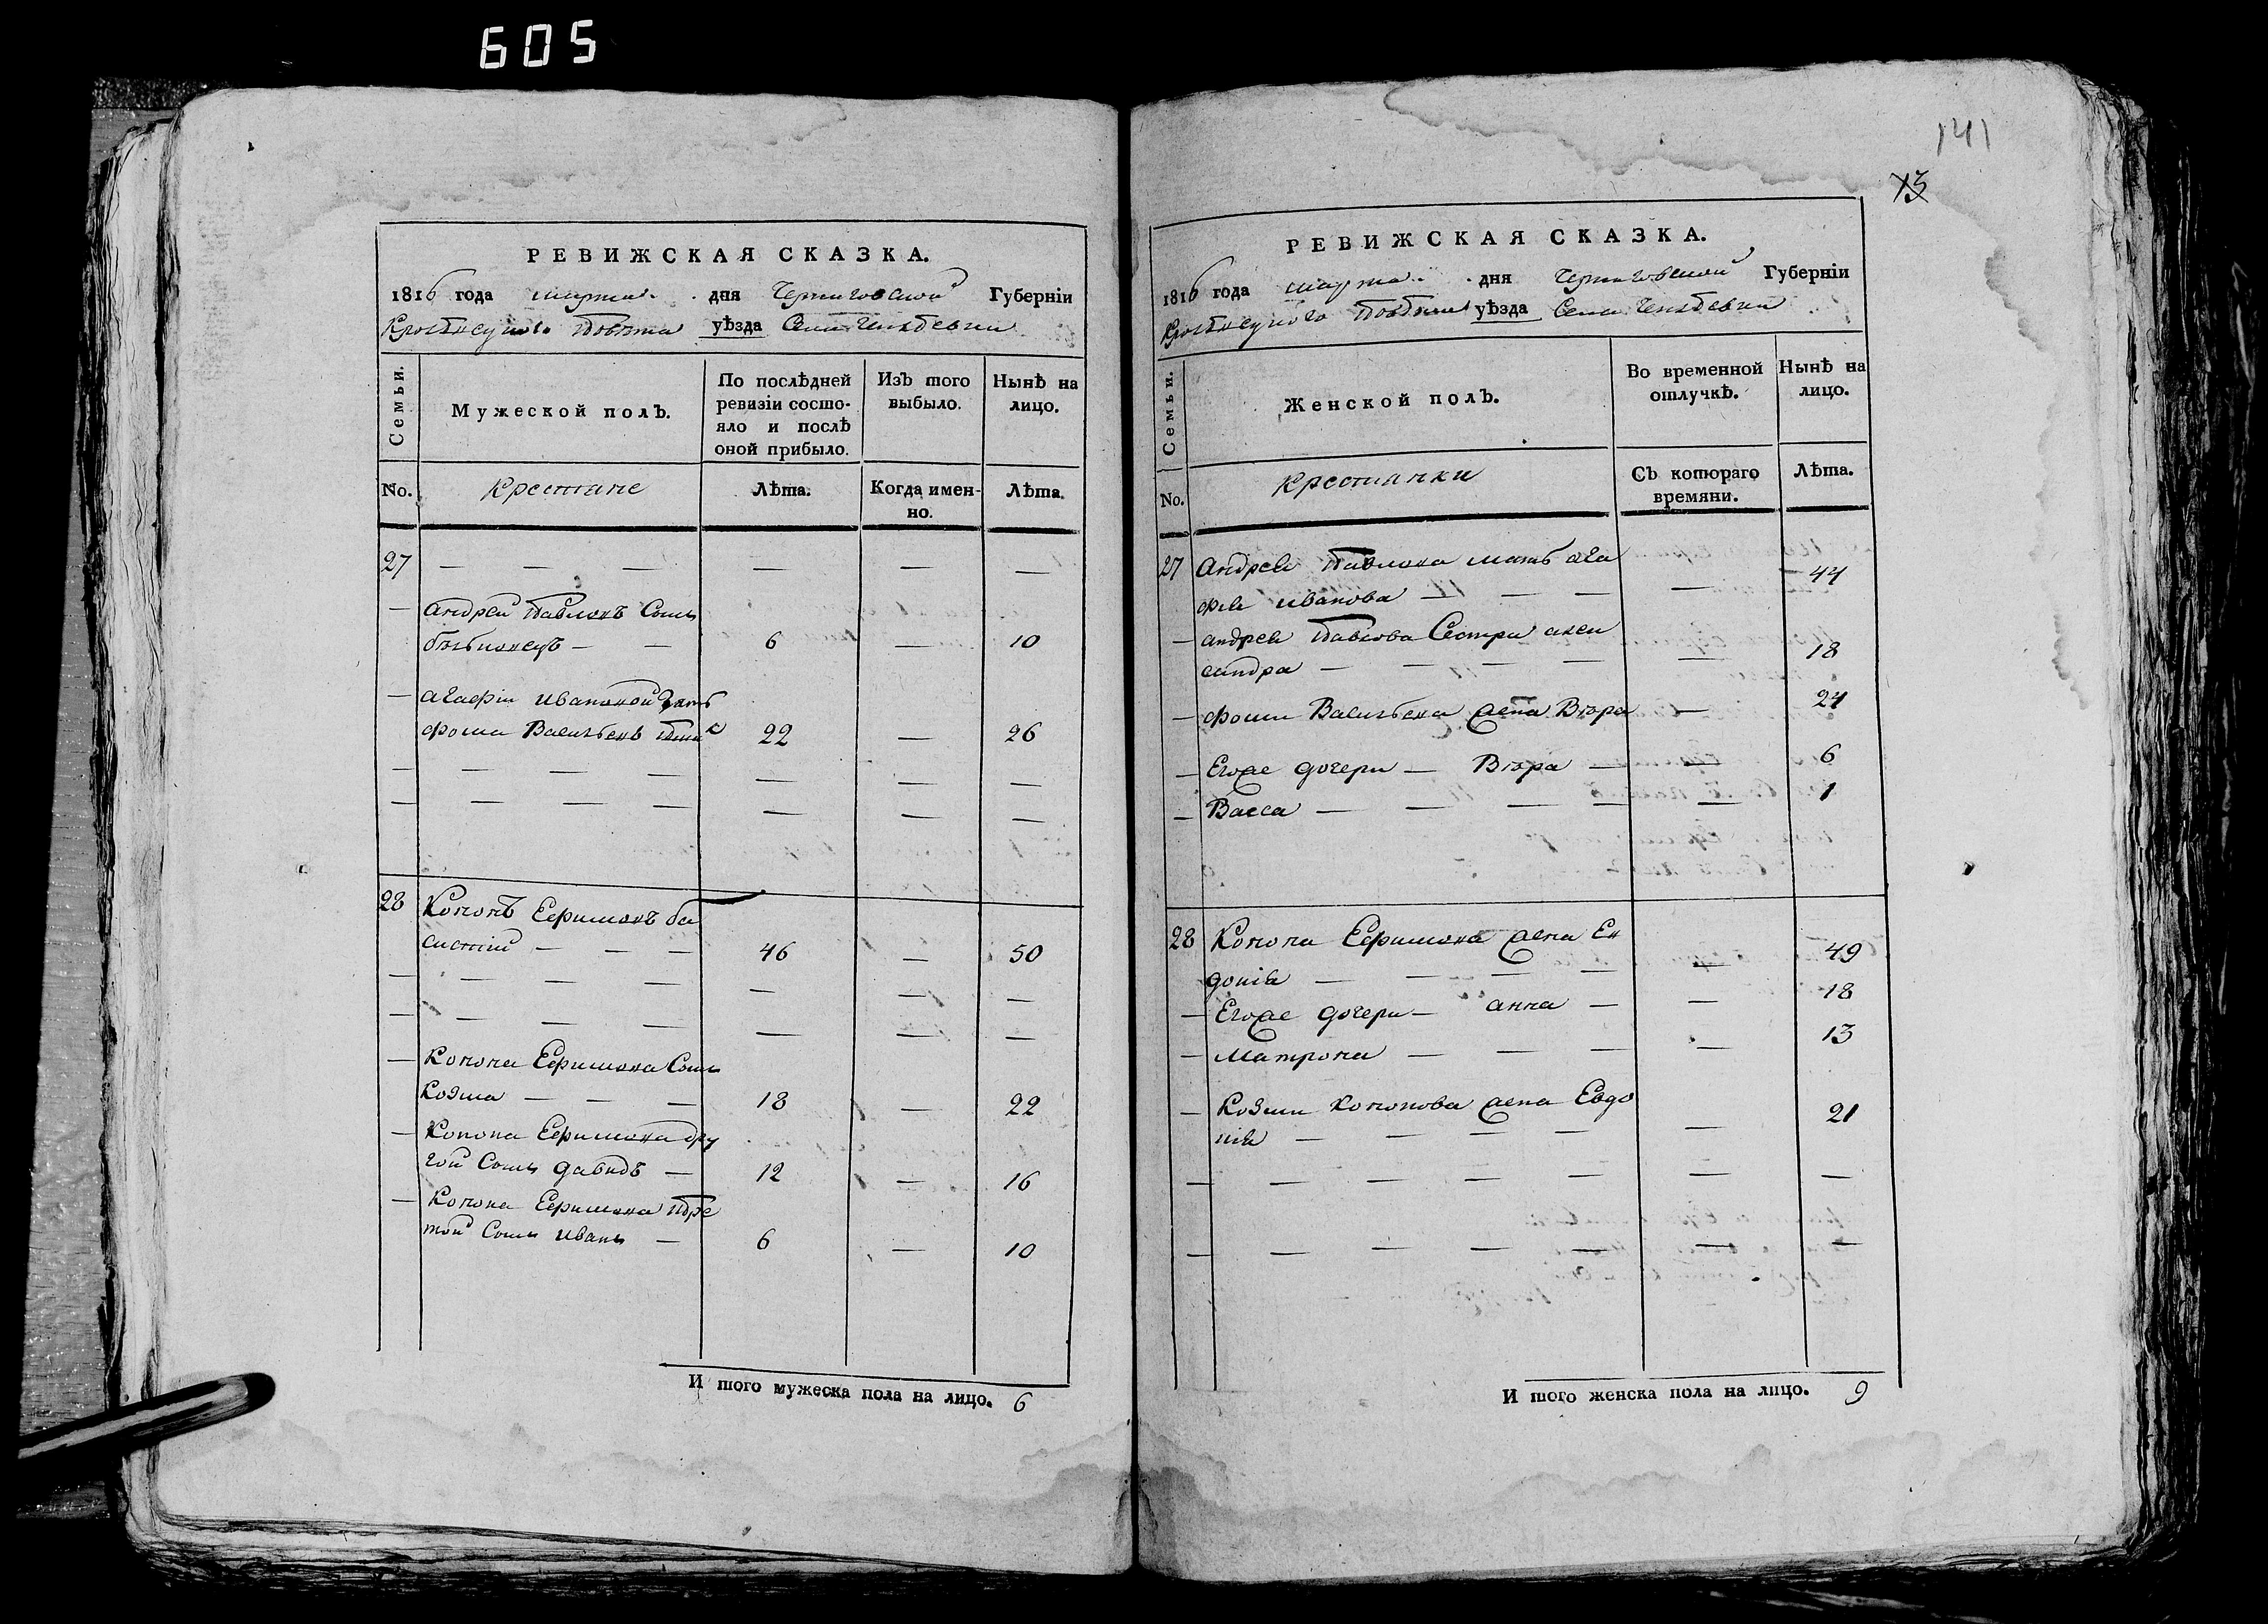 605
РЕВИЖСКАЯ СКАЗКА.
1816 года марта дня Черниговской Губерніи
Повѣта уѣзда Села
Семьи.
Мужеской полъ.
По послѣдней ревизіи состо-
яло и послѣ оной прибыло.
Изъ того выбыло.
Нынѣ на лицо.
No.
Крестяне
Лѣта.
Когда имен-
но.
Лѣта.
27 — — — — — —
— андрей Павловъ Сынъ
— — 6 — 10
— агафіи ивановой Зять
фома Васильевъ 22 — 26
— — — — — — —
— — — — — — —
28 Кононъ Ефимовъ
— — — 46 — 50
— — — — — — —
— — — — — — —
— Конона Ефимова Сынъ
Козма — — — 18 — 22
— Конона Ефимова дру
гой Сынъ давидъ — 12 — 16
— Конона Ефимова тре
той Сынъ иванъ — 6 — 10
И того мужеска пола на лицо. 6
141
13
РЕВИЖСКАЯ СКАЗКА.
1816 года марта дня Черниговской Губерніи
уѣзда Села
Семьи.
Женской полъ.
Во временной отлучкѣ.
Нынѣ на лицо.
No.
Крестянки
Съ котораго времяни.
Лѣта.
27 Андрея Павлова мать ага
фія иванова — — — — 44
— андрея Павлова Сестра алек
сандра — — — — — 18
— фомы Васильева жена Вѣра — 24
— Егоже дочери — Вѣра — — 6
— Васса — — — — — 1
28 Конона Ефимова жена Ев
докія — — — — — 49
— Егоже дочери — анна — — 18
— Матрона — — — — 13
— Козмы Кононова жена Евдо
кія — — — — — 21
— — — — — — —
— — — — — — —
И того женска пола на лицо. 9